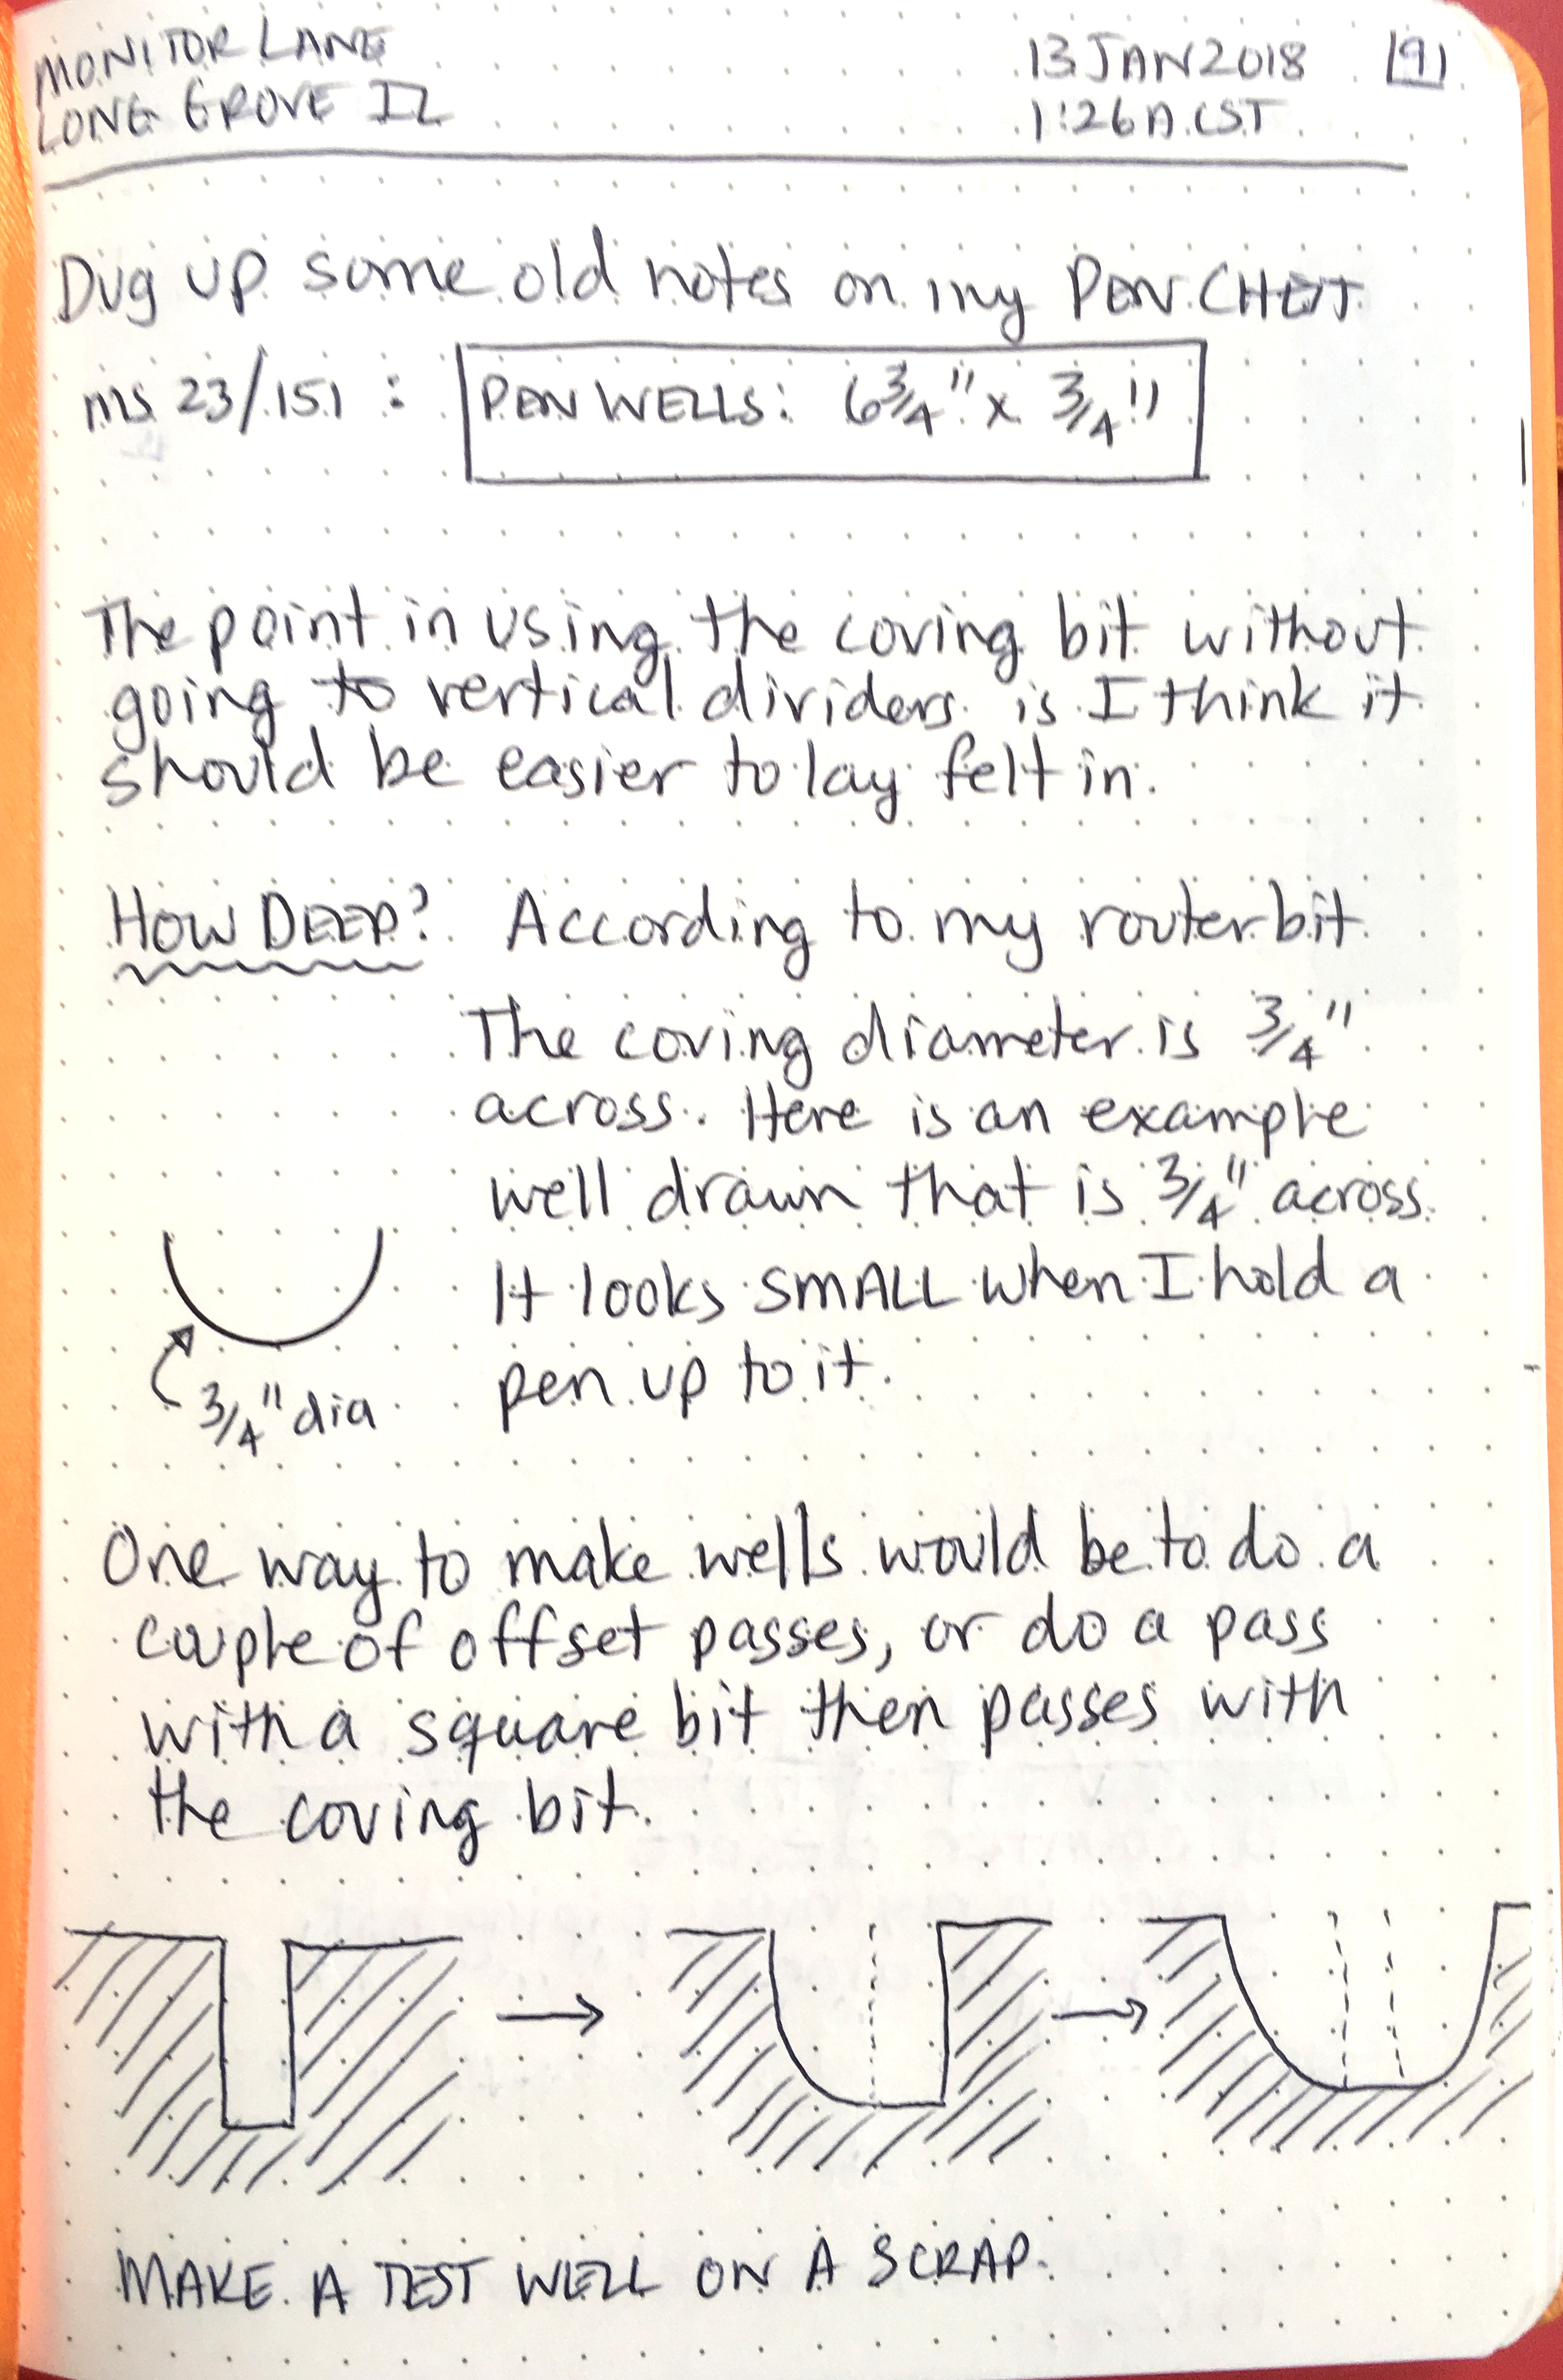 MONITOR LANE
LONG GROVE IL
13 JAN 2018 19
1:26A CST
Dug up some old notes on my PEN CHEST
ms 23/151 : PEN WELLS: 6 3/4" x 3/4"
The point in using the coving bit without
going to vertical dividers is I think it
should be easier to lay felt in.
HOW DEEP? According to my router bit
The coving diameter is 3/4"
across. Here is an example
well drawn that is 3/4" across.
It looks SMALL when I hold a
pen up to it.
3/4" dia
One way to make wells would be to do a
couple of offset passes, or do a pass
with a square bit then passes with
the coving bit.
MAKE A TEST WELL ON A SCRAP.